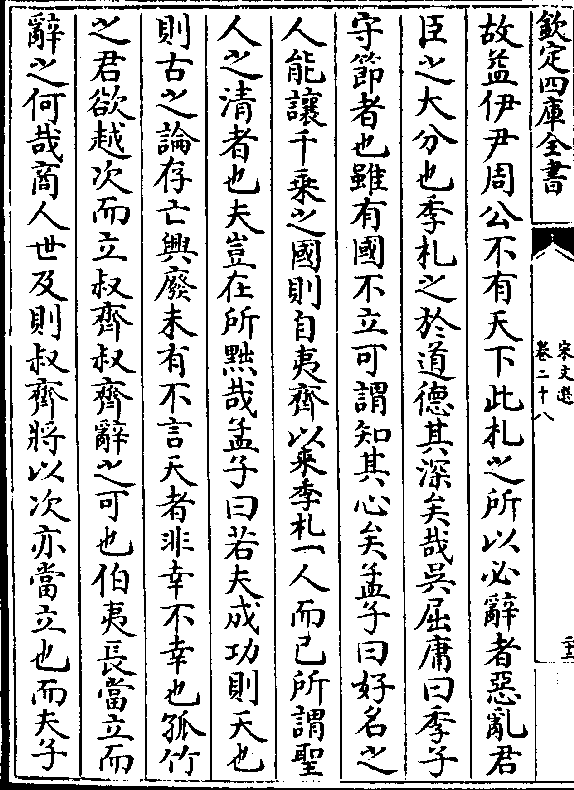 欽定四庫全書
宋文選
卷二十八
故益伊尹周公不有天下此札之所以必辭者惡亂君
臣之大分也季札之於道德其深矣哉吳屈庸曰季子
守節者也雖有國不立可謂知其心矣孟子曰好名之
人能讓千乘之國則自夷齊以来季札一人而已所謂聖
人之清者也夫豈在所㸃哉孟子曰若夫成功則天也
則古之論存亡興廢未有不言天者非幸不幸也孤竹
之君欲越次而立叔齊叔齊辭之可也伯夷長當立而
辭之何哉商人世及則叔齊將以次亦當立也而夫子